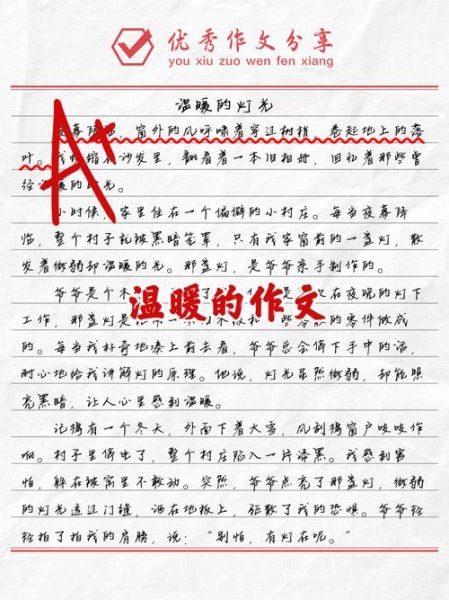 优秀作文分享
you xiu zuo wen fen xiang
温暖的灯光
A+
夜幕降临，窗外的风呼啸着穿过树梢，卷起地上的落
叶。我蜷缩在沙发里，翻看着一本旧相册，回忆着那些曾
经温暖的灯光。
小时候，家里住在一个偏僻的小村庄。每当夜幕降
临，整个村子就被黑暗笼罩，只有我家窗前的一盏灯，散
发着微弱却温暖的光。那盏灯，是爷爷亲手制作的。
爷爷是个木
在夜晚的灯下
温暖的作文
工作，那盏灯是
的零件做成
的。每当我好奇地凑上前去看，爷爷总会停下手中的活，
耐心地给我讲解灯的原理。他说，灯光虽然微弱，却能照
亮黑暗，让人心里感到温暖。
记得有一个冬天，外面下着大雪，风刮得窗户吱吱作
响。村子里停电了，整个村庄陷入一片漆黑。我感到害
怕，躲在被窝里不敢动。突然，爷爷点亮了那盏灯，微弱
的灯光透过门缝，洒在地板上，驱散了我的恐惧。爷爷轻
轻拍了拍我的肩膀，说：“别怕，有灯在呢。”